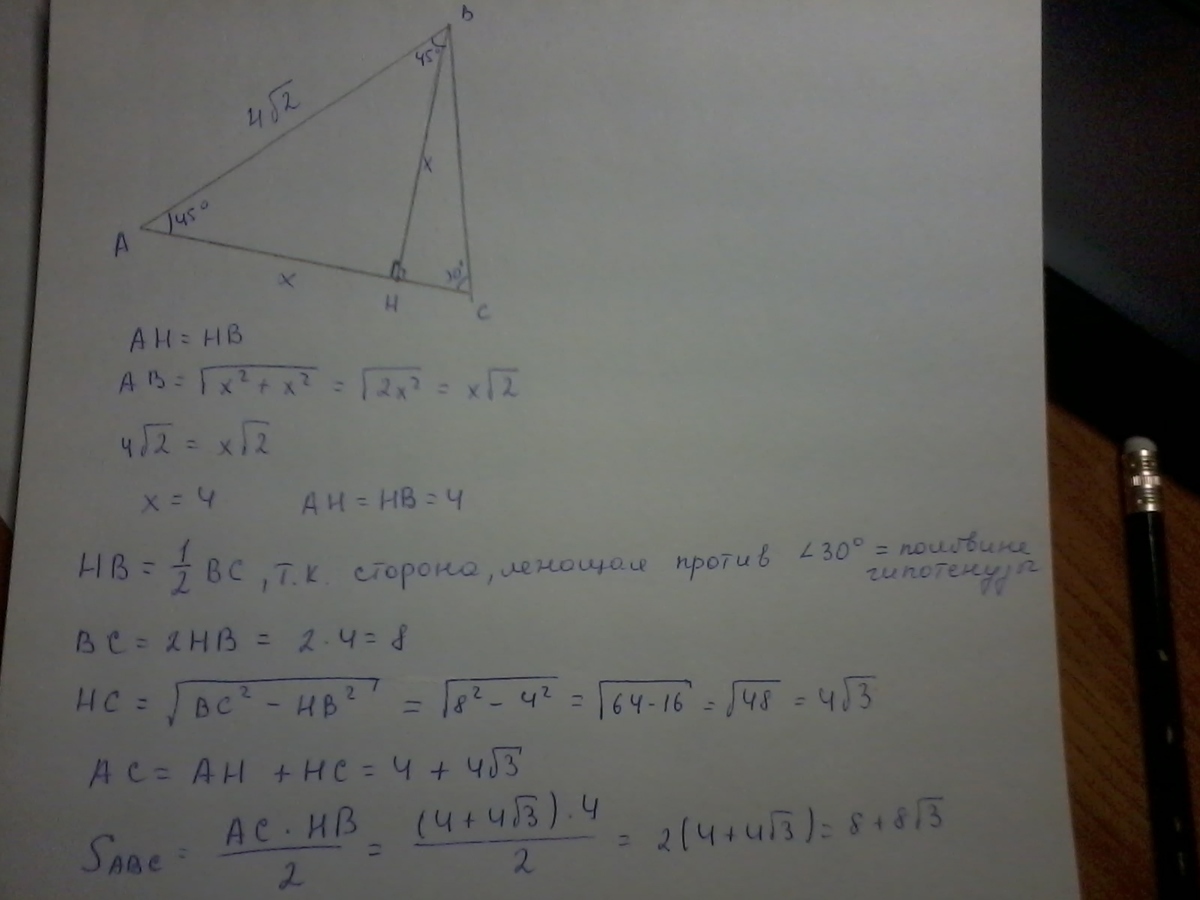 B
45°
4√2
x
45°
A
30°
x
H
C
AH = HB
AB = √x² + x² = √2x² = x√2
4√2 = x√2
x = 4 AH = HB = 4
HB = 1/2 BC, т.к. сторона, лежащая против ∠30° = половине гипотенузы
BC = 2HB = 2 · 4 = 8
HC = √BC² - HB² = √8² - 4² = √64-16 = √48 = 4√3
AC = AH + HC = 4 + 4√3
S_ABC = AC · HB / 2 = (4+4√3) · 4 / 2 = 2(4+4√3) = 8+8√3